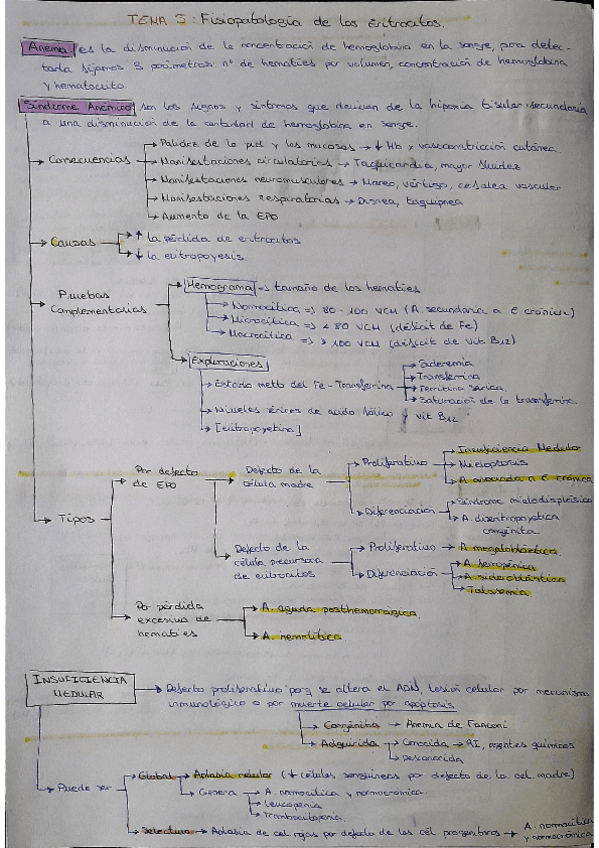 TEMA 5: Fisiopatología de los Eritrocitos.
Anemia es la disminución de la concentración de hemoglobina en la sangre, para detec-
tarla fijamos 3 parámetros: nº de hematíes por volumen, concentración de hemoglobina
y hematocrito
Síndrome Anémico son los signos y síntomas que derivan de la hipoxia tisular secundaria
a una disminución de la cantidad de hemoglobina en sangre.
Consecuencias
Palidez de la piel y las mucosas → ↓ Hb y vasoconstricción cutánea.
Manifestaciones circulatorias → Taquicardia, mayor fluidez
Manifestaciones neuromusculares → Mareo, vértigo, cefalea vascular
Manifestaciones respiratorias → Disnea, taquipnea
Aumento de la EPO
Causas
↑ la pérdida de eritrocitos
↓ la eritropoyesis.
Pruebas
Complementarias
Hemograma → tamaño de los hematíes
Normocítica => 80 - 100 VCM (A. secundaria a E. crónica)
Microcítica => < 80 VCM (déficit de Fe)
Macrocítica => > 100 VCM (déficit de vit B12)
Exploraciones
Estado metb del Fe - Transferrina
Sideremia
Transferrina
Ferritina sérica.
Saturación de la transferrina.
Niveles séricos de ácido fólico y vit B12
[eritropoyetina]
Tipos
Por defecto
de EPO
Defecto de la
célula madre
Proliferativo
Insuficiencia Medular
Mieloptosis
A. asociada a E. crónica
Diferenciación
Síndrome mielodisplásico
A. diseritropoyetica
congénita.
Defecto de la
célula precursora
de eritrocitos
Proliferativo → A. megaloblástica.
Diferenciación
A. ferropénica
A. sideroblástica
Talasemia
Por pérdida
excesiva de
hematíes
A. aguda posthemorrágica.
A. hemolítica
INSUFICIENCIA
MEDULAR
Defecto proliferativo porq se altera el ADN, lesión celular por mecanismo
inmunológico o por muerte celular por apoptosis
Congénita → Anemia de Fanconi
Adquirida
Conocida → RI, agentes químicos
Desconocida
Puede ser
Global → Aplasia celular (↓ células sanguíneas por defecto de la cel. madre)
Genera
A. normocítica y normocrómica.
Leucopenia
Trombocitopenia.
Selectiva → Aplasia de cel rojas por defecto de las cél progenitoras → A. normocítica
y normocrómica